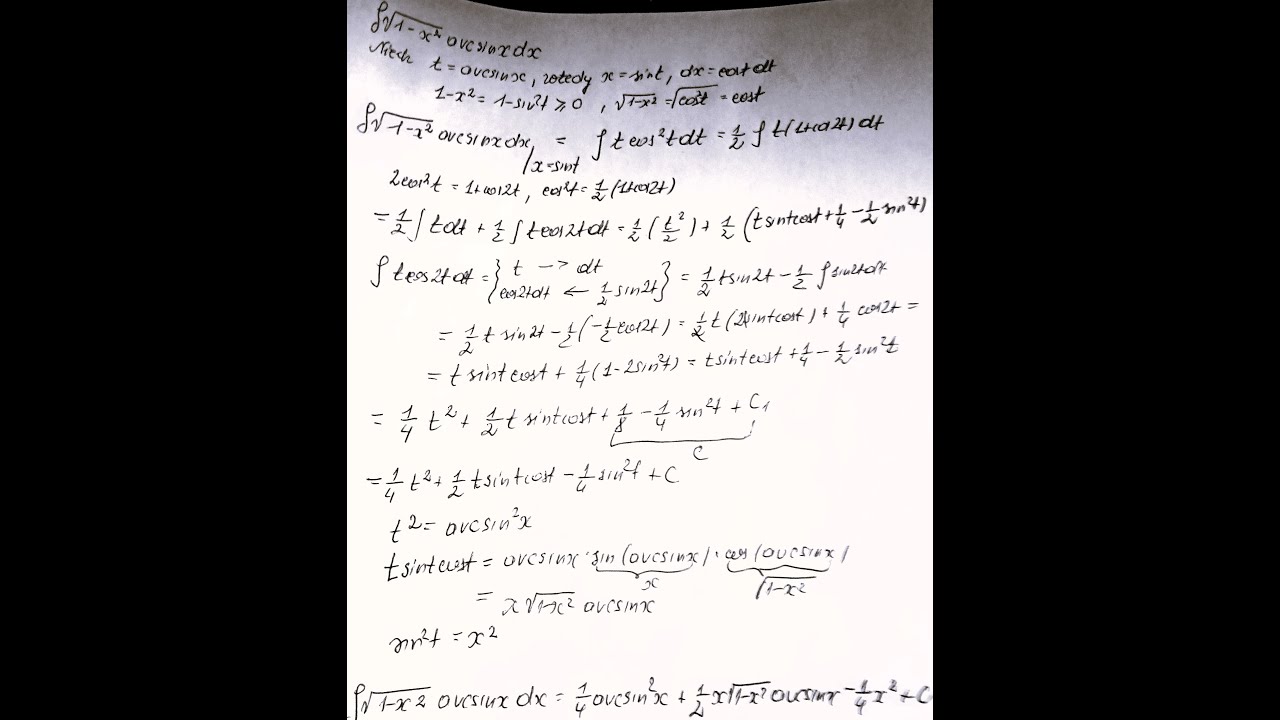 ∫√1-x² arcsinx dx
Niech t = arcsinx, wtedy x = sint, dx = cost dt
1-x² = 1-sin²t ⩾ 0 , √1-x² = √cos²t = cost
∫√1-x² arcsinx dx |x=sint = ∫ t cos²t dt = 1/2 ∫ t(1+cos2t) dt
2cos²t = 1+cos2t , cos²t = 1/2 (1+cos2t)
= 1/2 ∫ t dt + 1/2 ∫ t cos2t dt = 1/2 (t²/2) + 1/2 (t sint cost + 1/4 - 1/2 sin²t)
∫ t cos2t dt = { t → dt
cos2t dt ← 1/2 sin2t } = 1/2 t sin2t - 1/2 ∫ sin2t dt
= 1/2 t sin2t - 1/2 (-1/2 cos2t) = 1/2 t (2sint cost) + 1/4 cos2t =
= t sint cost + 1/4 (1-2sin²t) = t sint cost + 1/4 - 1/2 sin²t
= 1/4 t² + 1/2 t sint cost + 1/8 - 1/4 sin²t + C₁
C
= 1/4 t² + 1/2 t sint cost - 1/4 sin²t + C
t² = arcsin²x
t sint cost = arcsinx · sin(arcsinx) · cos(arcsinx)
x √1-x²
= x √1-x² arcsinx
sin²t = x²
∫√1-x² arcsinx dx = 1/4 arcsin²x + 1/2 x√1-x² arcsinx - 1/4 x² + C